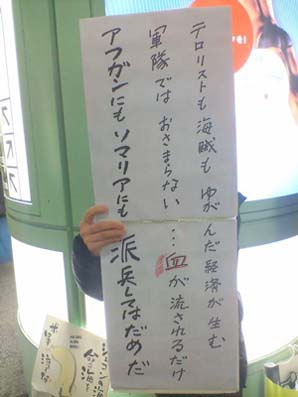 テロリストも海賊も ゆがんだ経済が生む
軍隊では おさまらない…血が流されるだけ
アフガンにも ソマリアにも 派兵してはだめだ